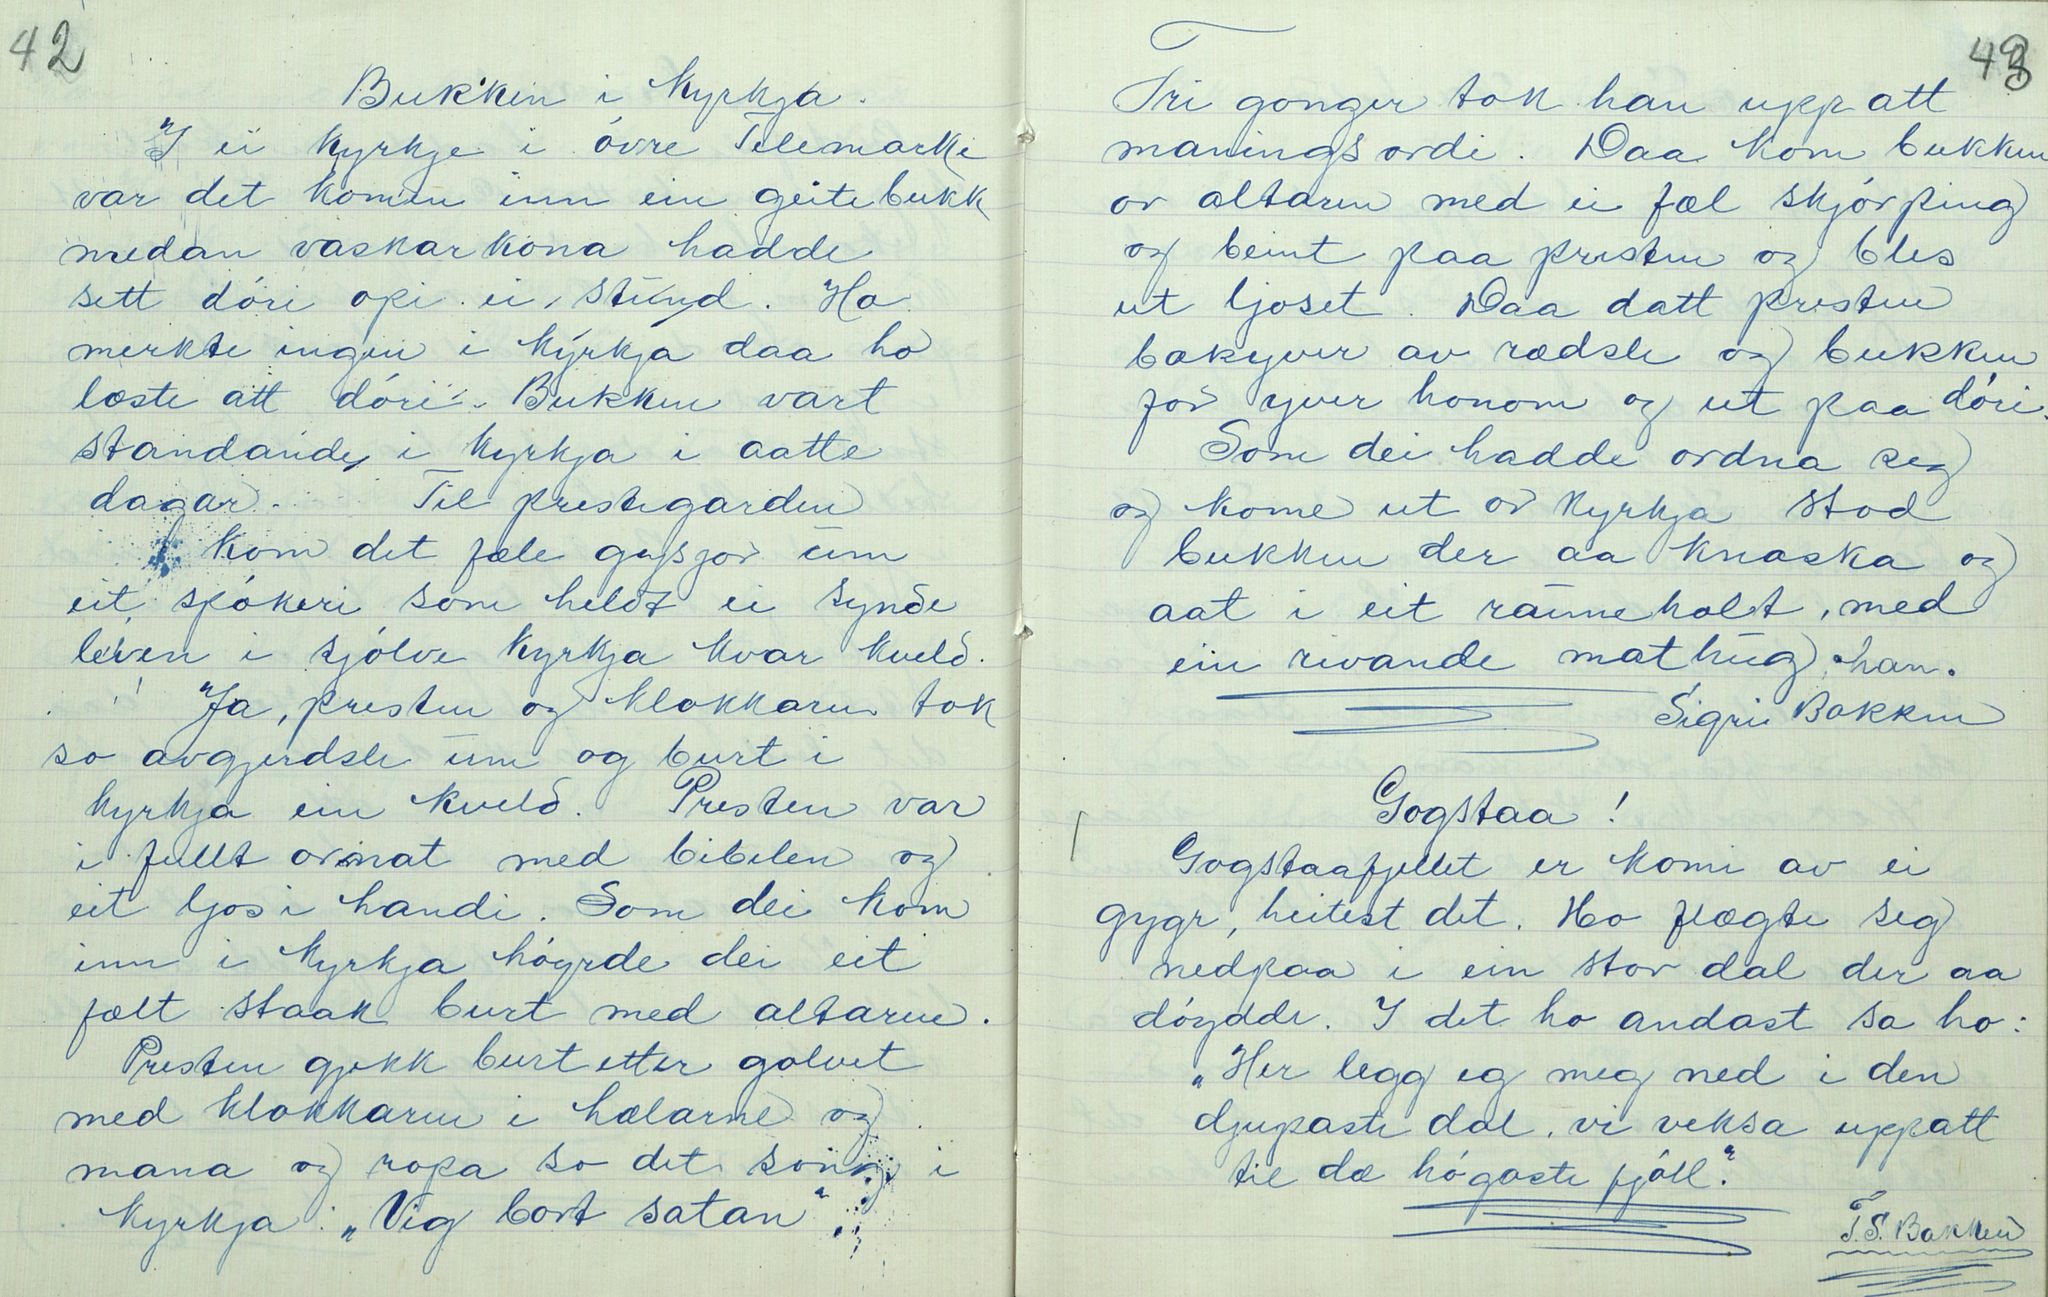 42
Bukken i Kyrkja.
I ei Kyrkje i óvre Telemarke
var det komen inn ein geitebukk
medan vaskarkona hadde
sett dóri opi ei stund. Ho
merkte ingen i Kyrkja daa ho
læste att dóri. Bukken vart
standande i Kyrkja i aatte
dagar. Til prestegarden
kom det fæle gysjor um
eit spókeri som heldt ei synde
leven i sjólve Kyrkja kvar kveld.
Ja, presten og klokkaren tok
so avgjerdsle um og burt i
kyrkja ein kveld. Presten var
i fullt ornat med bibelen og
eit ljos i handi. Som dei kom
inn i Kyrkja hóyrde dei eit
fælt staak burt med altaren.
Presten gjekk burt etter golvet
med klokkaren i hælarne og
mana og ropa so det song i
Kyrkja: „Vig bort satan“.
43
Tri gonger tok han upp att
maningsordi. Daa kom bukken
or altaren med ei fæl skjórping
og beint paa presten og bles
ut ljoset. Daa datt presten
bakyver av rædsle og bukken
for yver honom og ut paa dóri.
Som dei hadde ordna seg
og kome ut or Kyrkja stod
bukken der aa knaska og
aat i eit rauneholt, med
ein rivande mathug han.
Sigrii Bakken
Gogstaa!
Gogstaafjellet er komi av ei
gygr, heitest det. Ho flægte seg
nedpaa i ein stor dal der aa
dóydde. I det ho andast sa ho:
„Her legg eg meg ned i den
djupaste dal, vi veksa uppatt
til dæ hógaste fjóll.“
T.S. Bakken